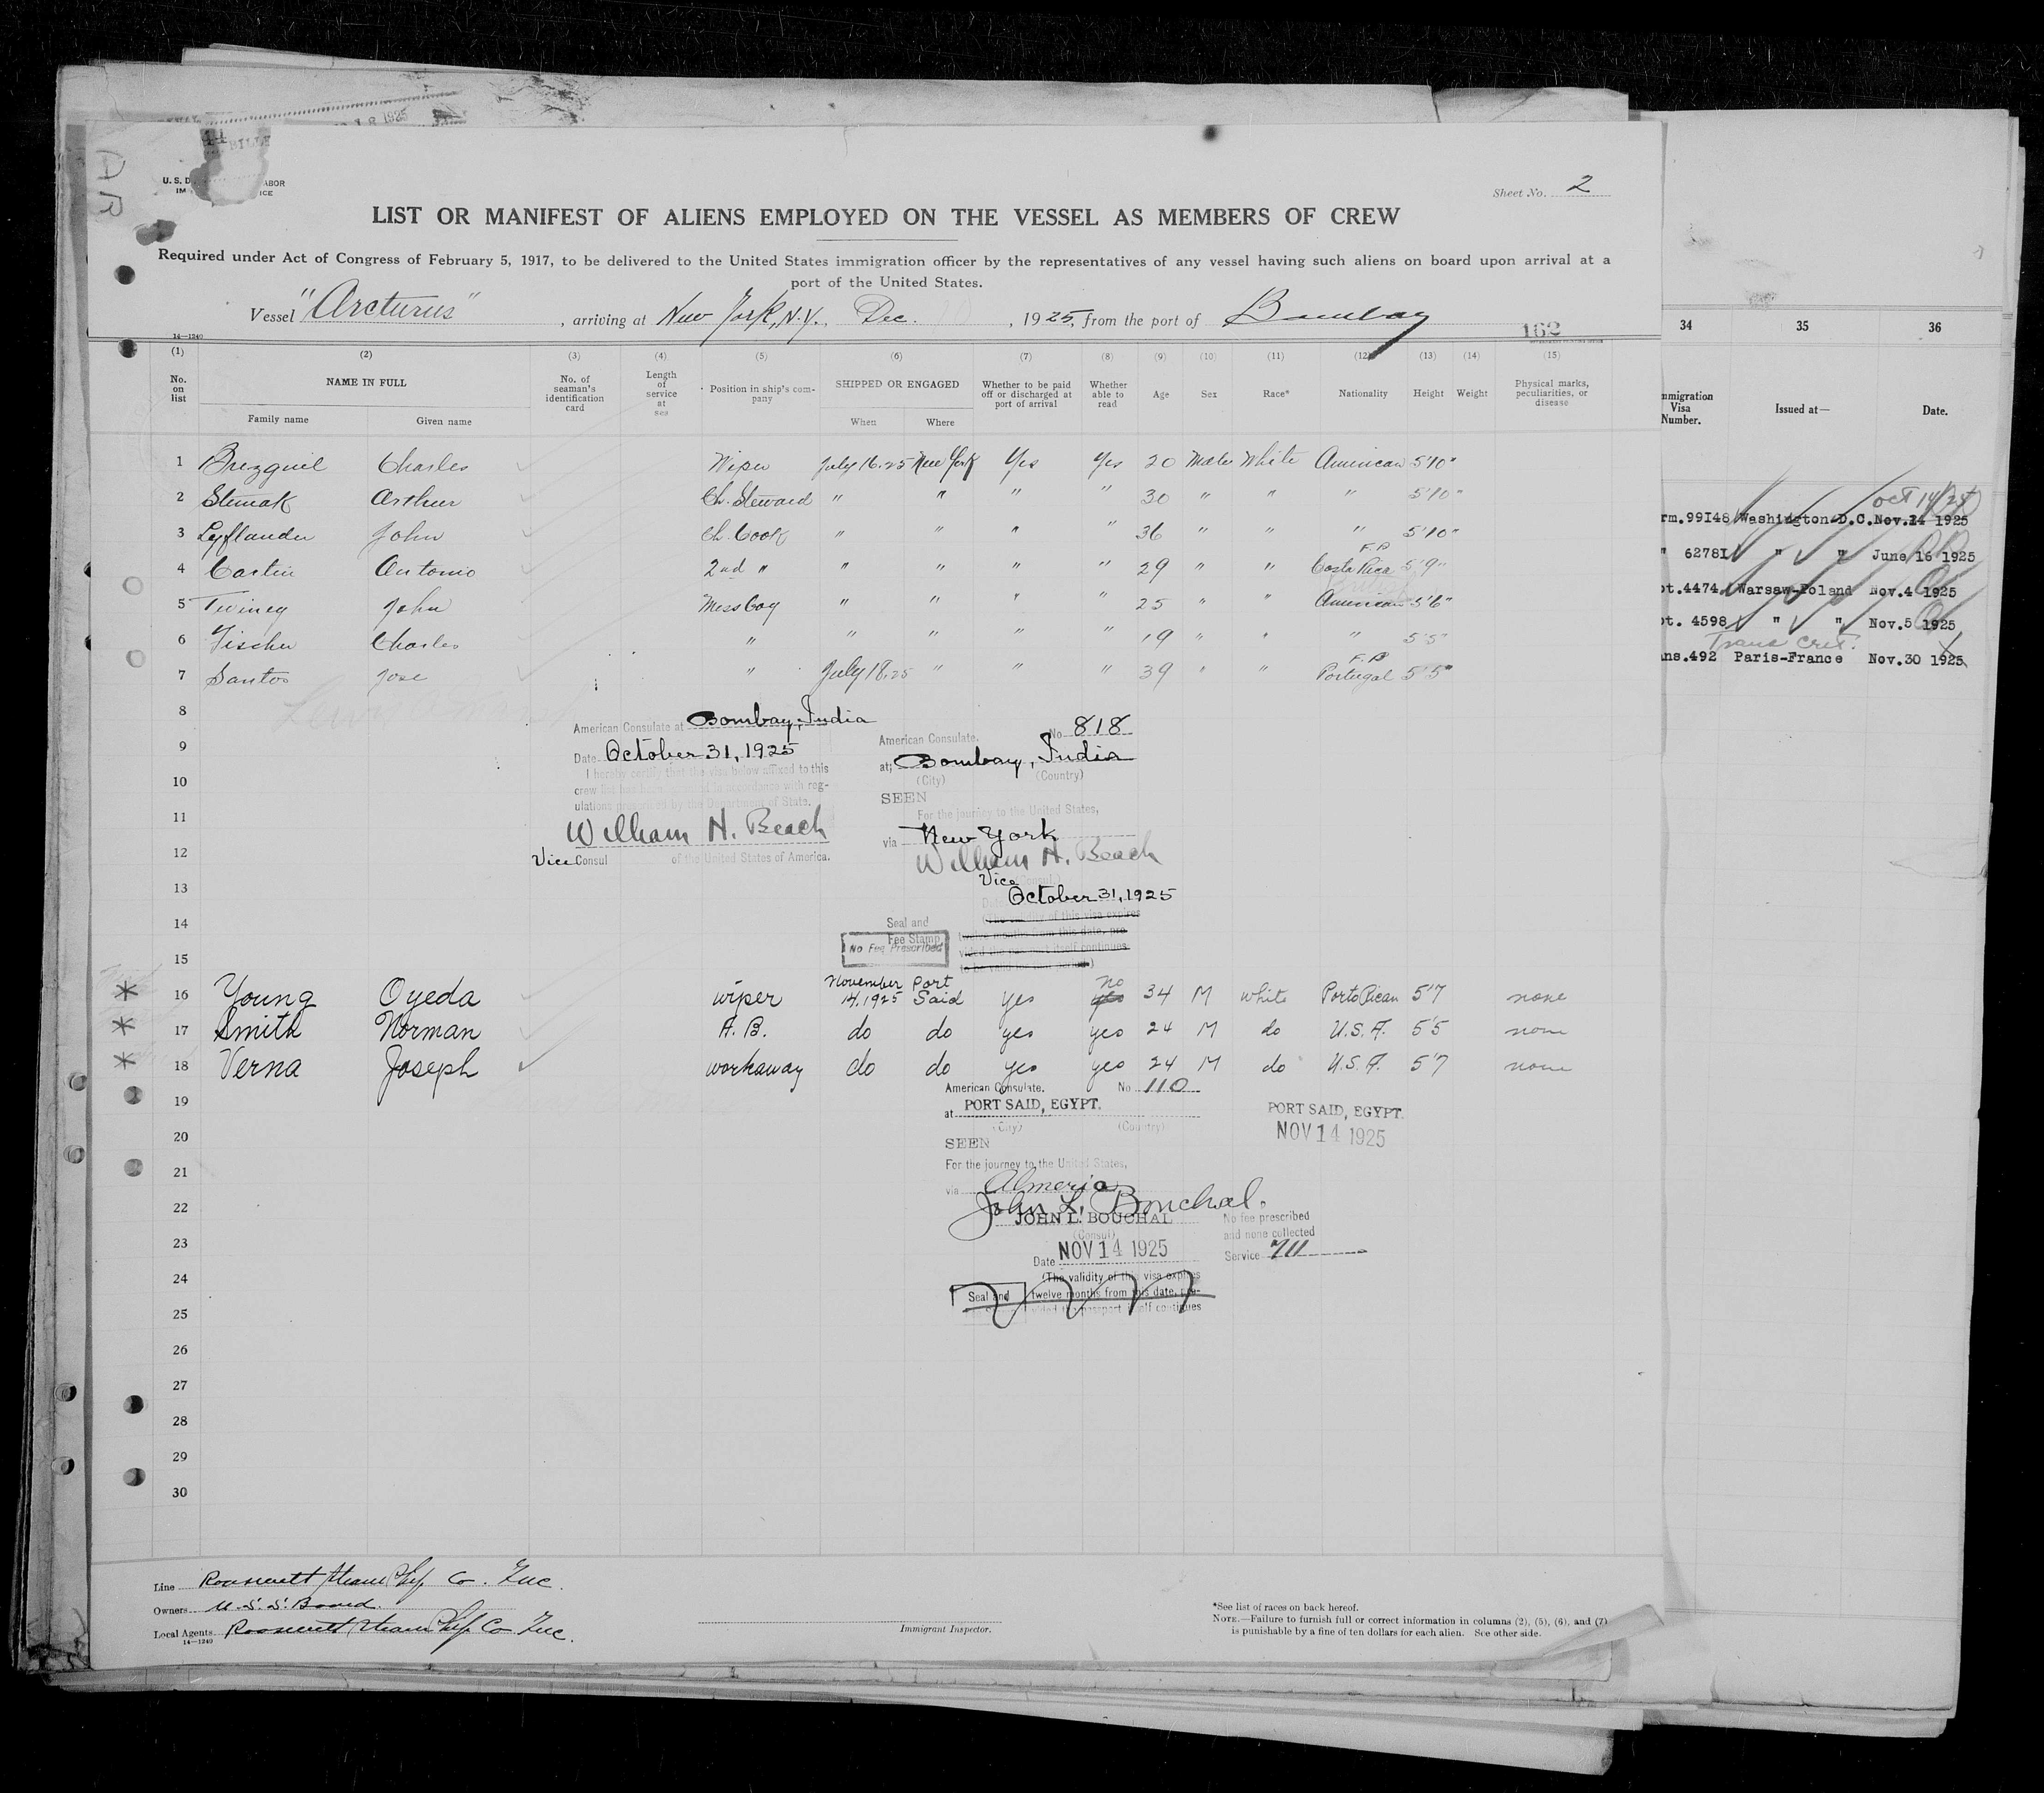 1925
BILLE
AR
U. S. D ABOR
IM ICE
Sheet No. 2
LIST OR MANIFEST OF ALIENS EMPLOYED ON THE VESSEL AS MEMBERS OF CREW
Required under Act of Congress of February 5, 1917, to be delivered to the United States immigration officer by the representatives of any vessel having such aliens on board upon arrival at a
port of the United States.
Vessel "Arcturus", arriving at New York, N.Y., Dec. , 1925, from the port of Bombay
14—1240
162
(1) (2) (3) (4) (5) (6) (7) (8) (9) (10) (11) (12) (13) (14) (15)
No. on list NAME IN FULL No. of seaman's identification card Length of service at sea Position in ship's company SHIPPED OR ENGAGED Whether to be paid off or discharged at port of arrival Whether able to read Age Sex Race* Nationality Height Weight Physical marks, peculiarities, or disease
Family name Given name When Where
1 Charles Wiper July 16.25 New York Yes Yes 20 Male White American 5'10"
2 Stumak Arthur Ch. Steward " " " " 30 " " " 5'10"
3 Leyflander John Ch. Cook " " " " 36 " " " 5'10"
F.P
4 Castin Antonio 2nd " " " " " 29 " " Costa Rica 5'9"
5 Twiney John Mess boy " " " " 25 " " American 5'6"
6 Fischer Charles " " " " " 19 " " " 5'5"
F.P
7 Santos Jose " July 18.25 " " " 39 " " Portugal 5'5"
8
9
10
11
12
13
14
15
American Consulate at Bombay, India
Date October 31, 1925
I hereby certify that the visa below affixed to this
crew list has been granted in accordance with reg-
ulations prescribed by the Department of State.
William H. Beach
Vice Consul of the United States of America.
American Consulate. No 818
at Bombay, India
(City) (Country)
SEEN
For the journey to the United States,
via New York
William H. Beach
Vice (Consul)
October 31, 1925
(The validity of this visa expires
twelve months from this date, pro-
vided the passport itself continues
to be valid for that period.)
Seal and
Fee Stamp
No Fee Prescribed
16 Young Oyeda wiper November 14, 1925 Port Said yes yes no 34 M white Porto Rican 5'7 none
17 Smith Norman A. B. do do yes yes 24 M do U.S.A. 5'5 none
18 Verna Joseph workaway do do yes yes 24 M do U.S.A. 5'7 none
19
20
21
22
23
24
25
26
27
28
29
30
American Consulate. No 110
at PORT SAID, EGYPT.
(City) (Country)
SEEN
For the journey to the United States,
via Almeria
John L. Bouchal.
JOHN L. BOUCHAL
(Consul)
Date NOV 14 1925
(The validity of this visa expires
twelve months from this date, pro-
vided the passport itself continues
Seal and
PORT SAID, EGYPT.
NOV 14 1925
No fee prescribed
and none collected
Service 711
Line Roosevelt Steam Ship Co. Inc.
Owners U. S. S. Board.
Local Agents Roosevelt Steam Ship Co Inc.
14—1240
Immigrant Inspector.
*See list of races on back hereof.
NOTE.—Failure to furnish full or correct information in columns (2), (5), (6), and (7)
is punishable by a fine of ten dollars for each alien. See other side.
34 35 36
mmigration Visa Number. Issued at— Date.
oct 14/24
rm.99148 Washington-D.C. Nov.14 1925
" 62781 " " June 16 1925
ot.4474 Warsaw-Poland Nov.4 1925
ot. 4598 " " Nov.5 1925
Trans Cret.
ns.492 Paris-France Nov.30 1925